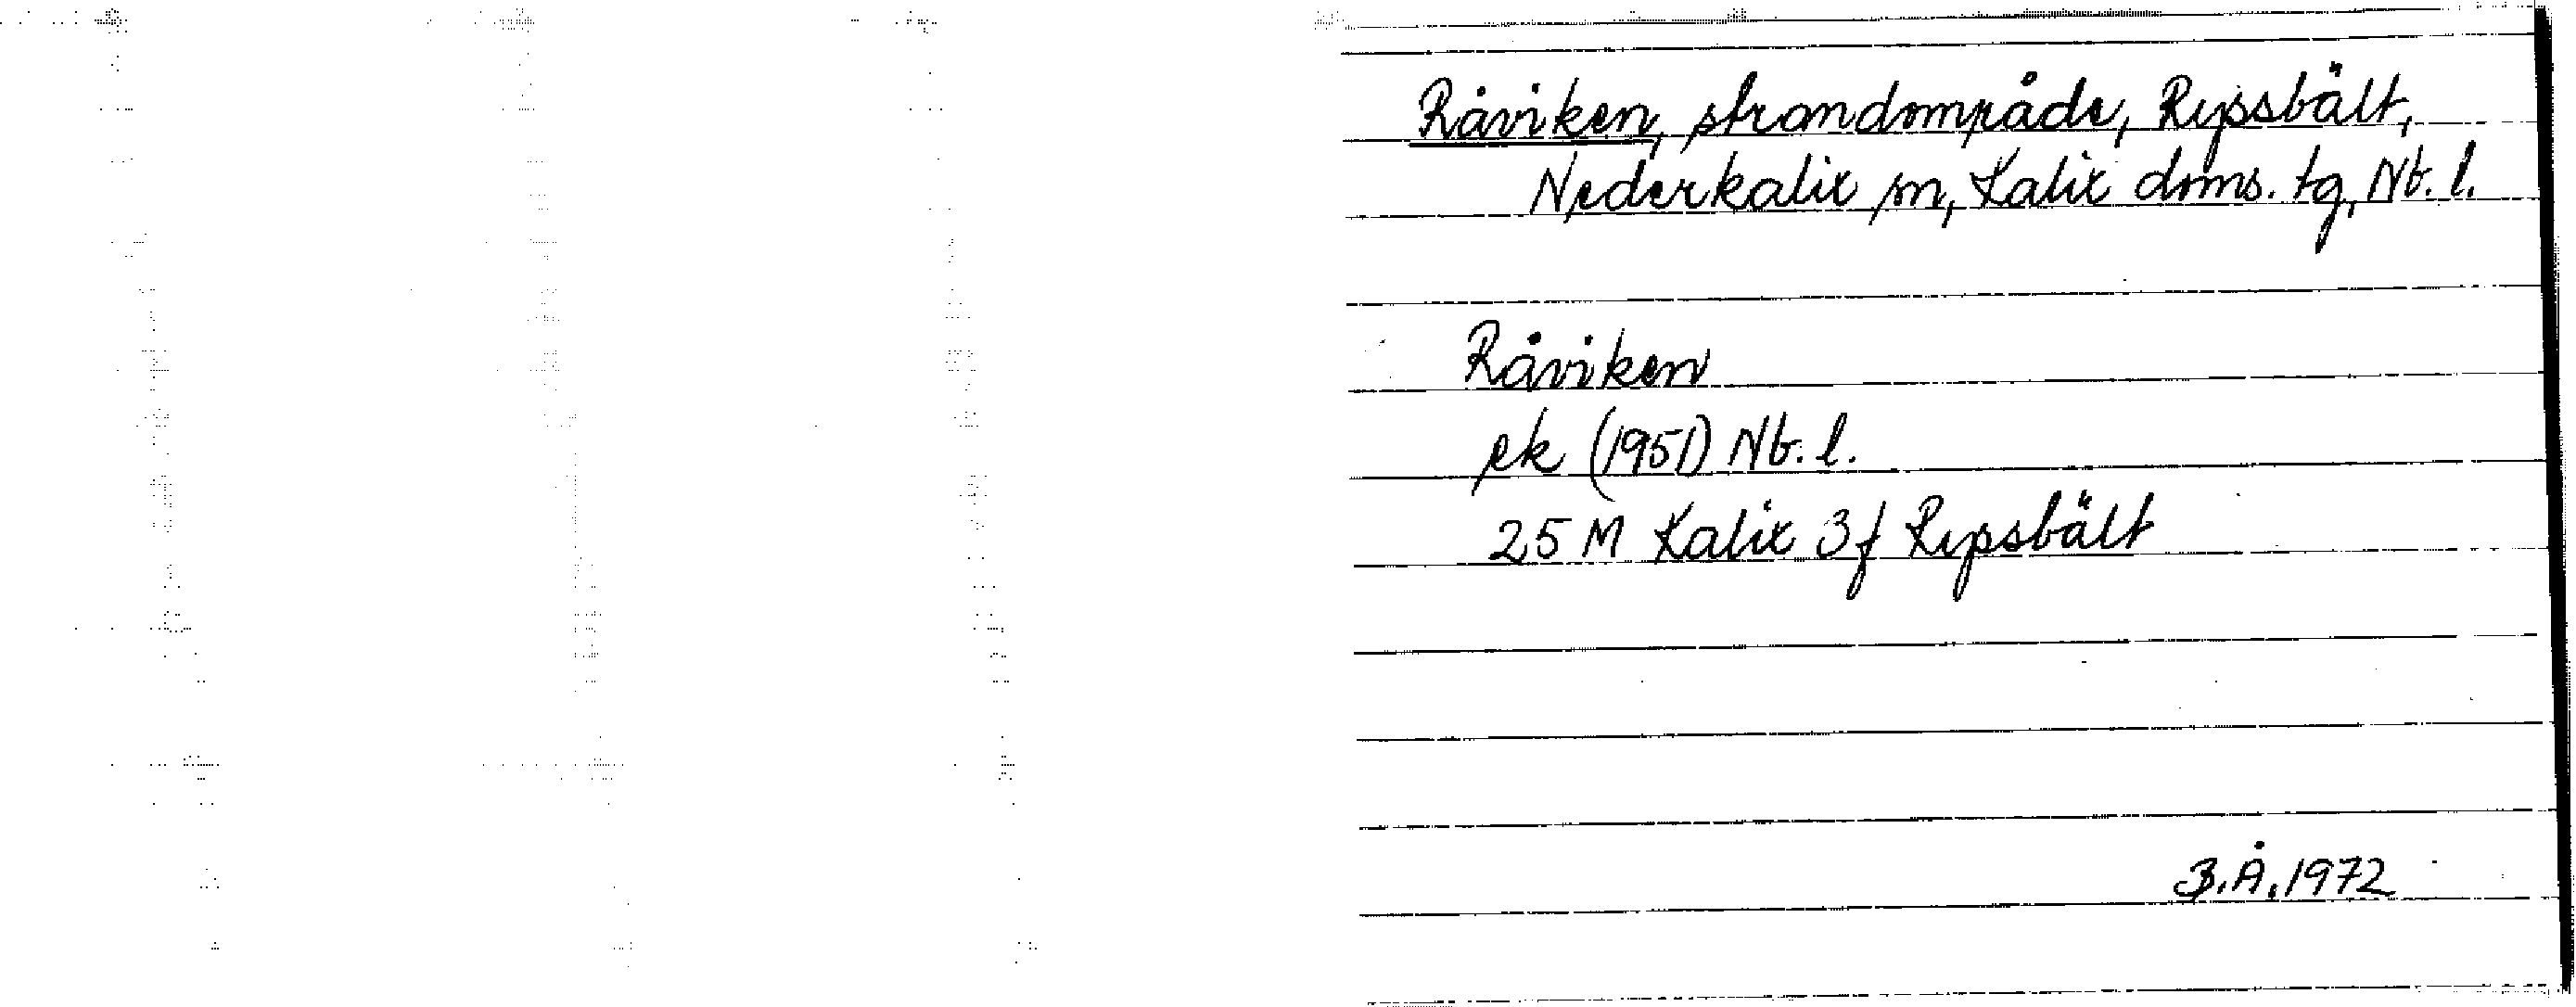 Råviken, strandområde, Rypsbält,
Nederkalix sn, Kalix doms. tg, Nb. l.
Råviken
ek (1951) Nb. l.
25 M Kalix 3f Rypsbält
B.Å. 1972